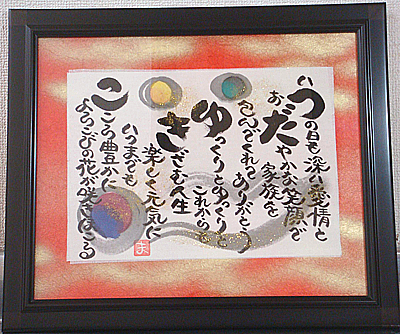 いつの日も 深い愛情と
おだやかな笑顔で
家族を
包んでくれてありがとう
ゆっくりとゆっくりと
これから
きざむ人生
楽しく元気に
いつまでも
こころ豊かに
よろこびの花が咲きほこる
ま